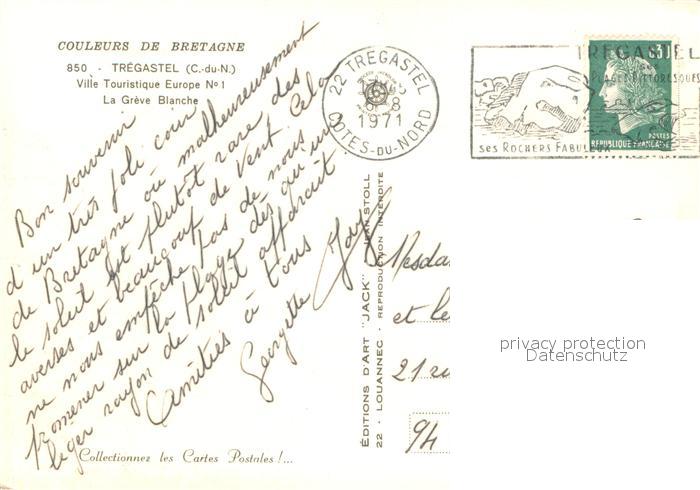 COULEURS DE BRETAGNE
850 - TRÉGASTEL (C.-du-N.)
Ville Touristique Europe No 1
La Grève Blanche
Bon souvenir
d'un très joli coin
de Bretagne où malheureusement
le soleil est plutôt rare des
averses et beaucoup de vent. Cela
ne nous empêche pas de nous
promener sur la plage dès qu'un
léger rayon de soleil apparaît
Amitiés à tous
Georgette
Collectionnez les Cartes Postales !...
22 TREGASTEL
6-8
1971
COTES-DU-NORD
TREGASTEL
ses
PLAGES PITTORESQUES
ses ROCHERS FABULEUX
POSTES
REPUBLIQUE FRANÇAISE
ÉDITIONS D'ART "JACK" - JEAN STOLL
22 - LOUANNEC - REPRODUCTION INTERDITE
Mesda
et le
21 ru
94
privacy protection
Datenschutz